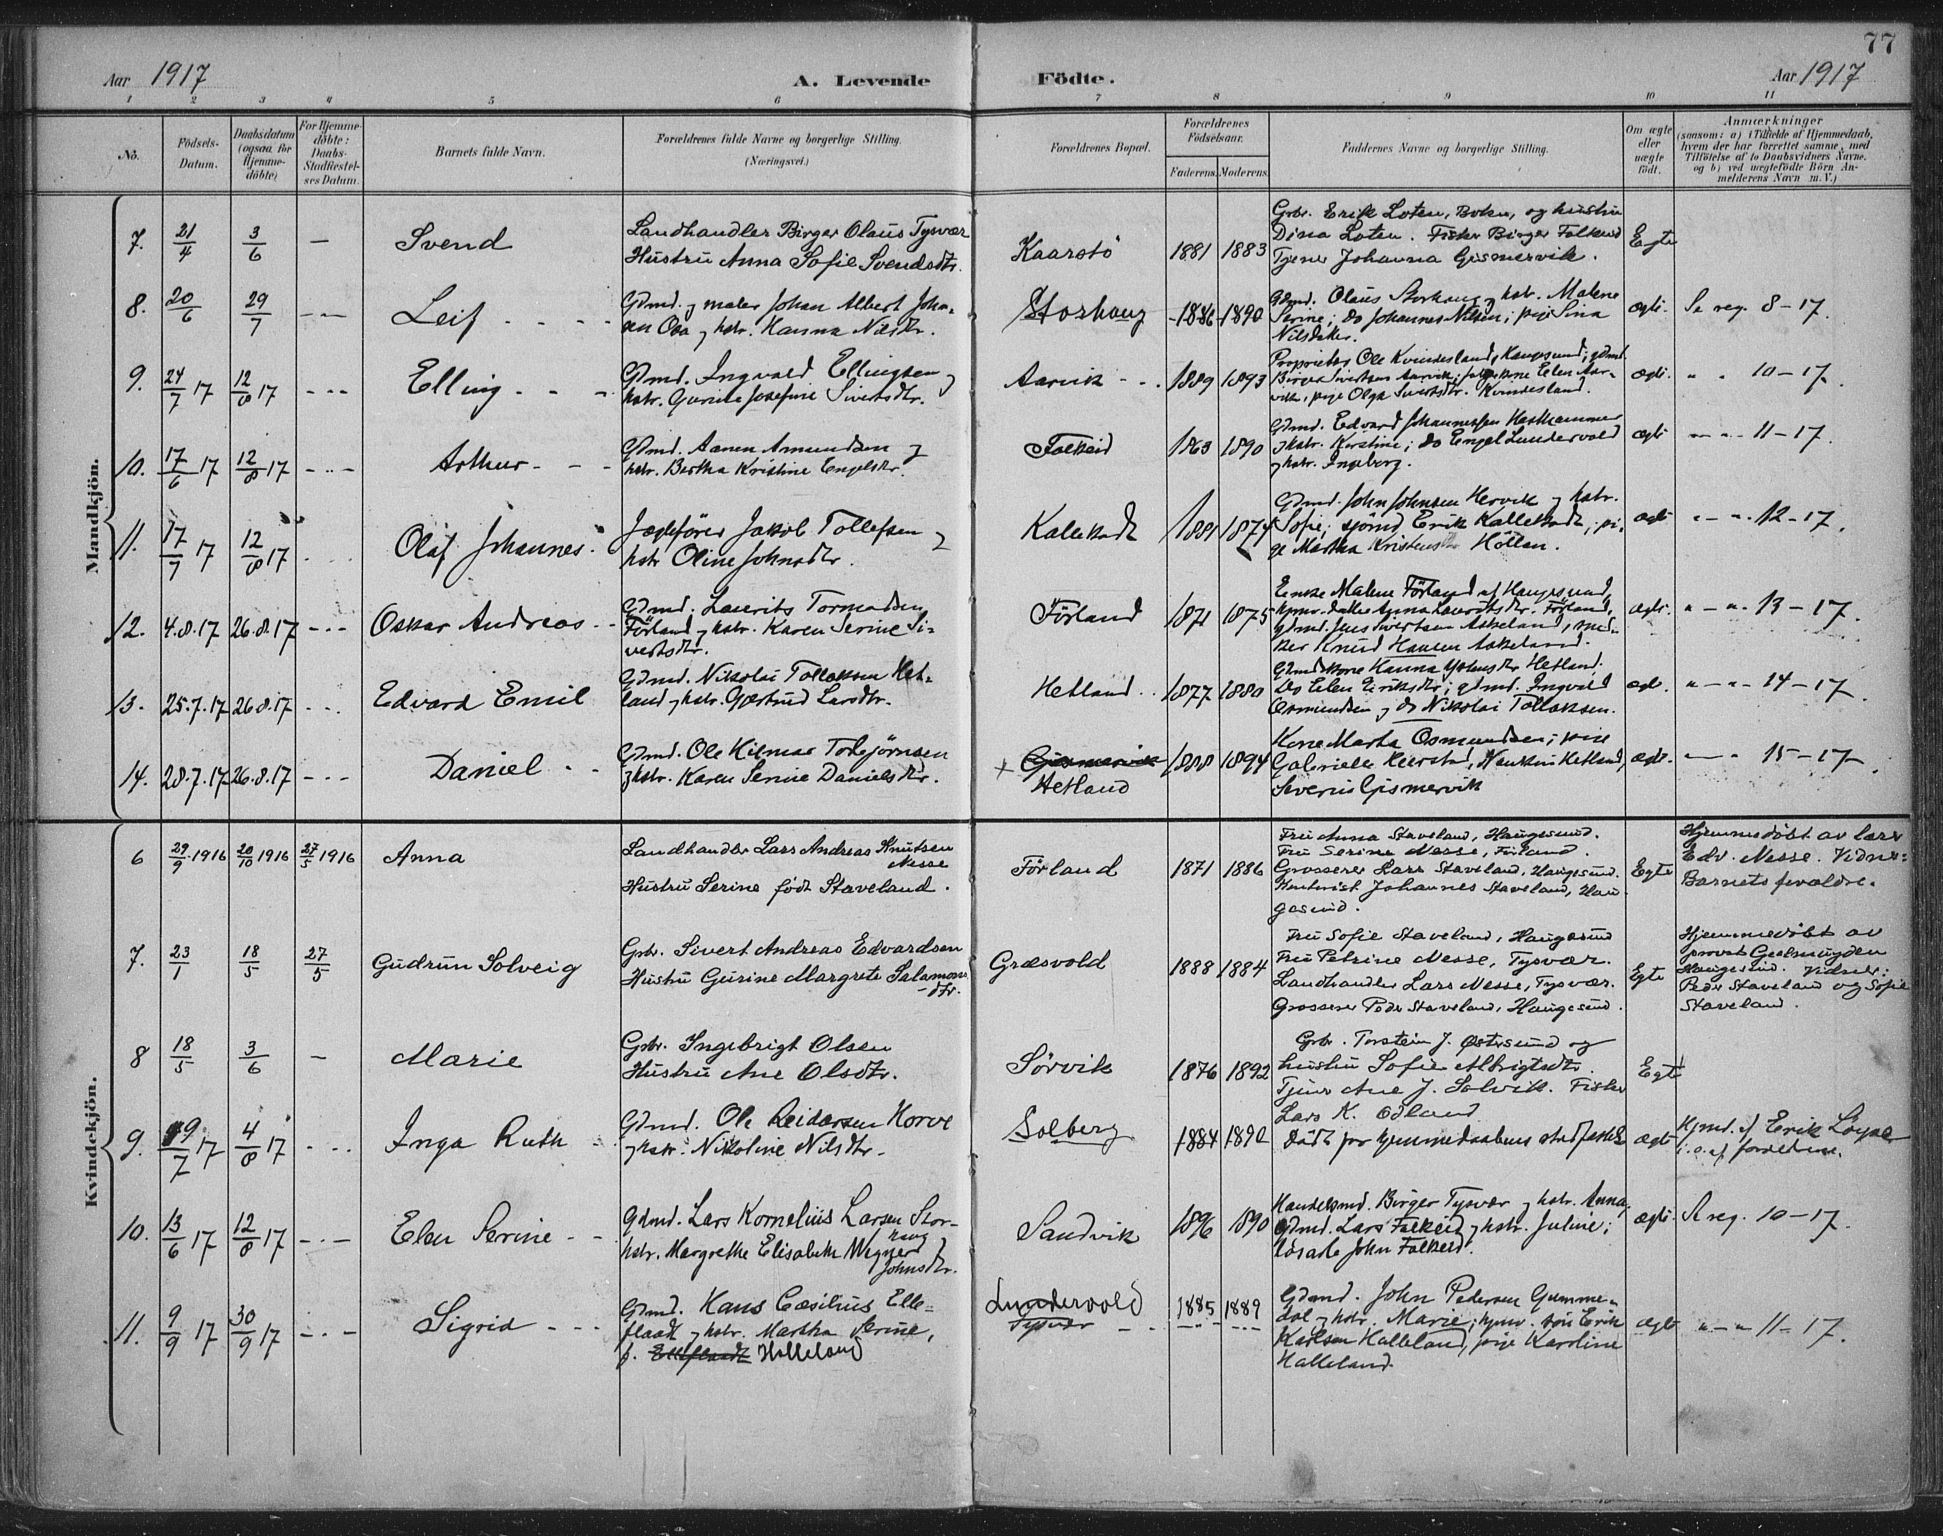 77
Aar 1917
A. Levende Födte.
Aar 1917
1 2 3 4 5 6 7 8 9 10 11
No.
Födsels-
Datum.
Daabsdatum
(ogsaa for
Hjemme-
döbte)
For Hjemme-
döbte:
Daabs-
Stadfæstel-
ses Datum.
Barnets fulde Navn.
Forældrenes fulde Navne og borgerlige Stilling.
(Næringsvei.)
Forældrenes Bopæl.
Forældrenes
Födselsaar.
Faderens. Moderens.
Faddernes Navne og borgerlige Stilling.
Om ægte
eller
uægte
födt.
Anmærkninger
(saasom: a) i Tilfælde af Hjemmedaab,
hvem der har forrettet samme, med
Tilföielse af to Daabsvidners Navne.
og b) ved uægtefödte Börn An-
melderens Navn m. V.)
Mandkjön.
7. 21/4 3/6 — Svend
Landhandler Birger Olaus Tysvær
Hustru Anna Sofie Svendsdtr.
Kaarstö 1881 1883
Gbr. Erik Loten, Bokn, og hustru
Dina Loten. Fisker Birger Falkeid
Tjener Johanna Gismervik.
Egte
8. 20/6 29/7 Leif
Gdmd. og maler Johan Albert Johan-
sen Osa og hstr. Hanna Nilsdtr.
Storhaug 1886 1890
Gdmd. Olaus Storhaug og hstr. Malene
Serine; do Johannes Nilsen; pige Sina
Nilsdatter.
ægte. Se reg. 8-17.
9. 24/7 17 12/8 17 Elling
Gdmd. Ingvald Ellingsen og
hstr. Gurine Josefine Sivertsdtr.
Aarvik 1889 1893
Proprietær Ole Kvindesland, Haugesund; gdmd.
Birger Sivertsen Aarvik; Elen Aar-
vik, pige Olga Sivertsdtr. Kvindesland.
ægte. " " 10-17.
10. 17/6 17 12/8 17 Arthur
Gdmd. Aanen Amundsen og
hstr. Bertha Kristine Engelsdtr.
Falkeid 1863 1890
Gdmd. Edvard Johannessen Hesthammer
og hstr. Kirstine; do Engel Lundervold
og hstr. Ingeborg.
ægte " — " 11-17.
11. 17/7 17 12/8 17 Olaf Johannes
Jægtfører Jakob Tollefsen og
hstr Oline Johnsdtr.
Kallekodt 1881 1874
Gdmd. John Johnsen Hervik og hstr.
Sofie; Erik Kallekodt; pi-
ge Martha Kristensdtr Höllen.
ægte " — " 12-17.
12. 4.8.17 26.8.17 Oskar Andreas
Gdmd. Laurits Tormodsen
Förland og hstr. Karen Serine Si-
vertsdtr.
Förland 1871 1875
Enke Malene Förland af Haugesund,
hjmv. datter Anna Lauritsdtr. Förland,
gdmd. Jens Sivertsen Askeland, sned-
ker Knud Hansen Askeland.
ægte. " — " 13-17.
13. 25.7.17 26.8.17 Edvard Emil
Gdmd. Nikolai Tollaksen Het-
land og hstr. Gjertrud Larsdtr.
Hetland 1877 1880
Gdmdskone Hanna Hetland;
Do Elen Eriksdtr; gdmd. Ingvald
Osmundsen og do Nikolai Tollaksen.
ægte. " — " 14-17.
14. 28.7.17 26.8.17 Daniel
Gdmd. Ole Hilmar Torbjørnsen
og hstr. Karen Serine Danielsdtr.
+ Gismervik
Hetland
1888 1894
Kone Marta Osmundsen; pige
Gabrielle Hetland,
Severin Gismervik
ægte. — " 15-17.
Kvindekjön.
6 29/9 1916 20/10 1916 27/5 1916 Anna
Landhandler Lars Andreas Knutsen
Nesse
Hustru Serine født Staveland.
Förland 1871 1886
Fru Anna Staveland, Haugesund.
Fru Serine Nesse, Förland.
Grosserer Lars Staveland, Haugesund.
Johannes Staveland, Hau-
gesund.
Egte
Hjemmedöbt av lærer
Edv. Nesse. Vidner:
Barnets forældre.
7. 23/1 18/5 27/5 Gudrun Solveig
Gbr. Sivert Andreas Edvardsen
Hustru Gurine Margrete Salamons-
dtr.
Græsvold 1888 1884
Fru Sofie Staveland, Haugesund
Fru Petrine Nesse, Tysvær.
Landhandler Lars Nesse, Tysvær.
Grosserer Peder Staveland, Haugesund.
Egte
Hjemmedöbt av
provst Gjelmuyden
Haugesund. Vidner:
Peder Staveland og Sofie
Staveland.
8 18/5 3/6 — Marie
Gbr. Ingebrigt Olsen
Hustru Ane Olsdtr.
Sørvik 1876 1892
Gbr. Torstein J. Østersund og
hustru Sofie Albrigtsdtr.
Tjener Ane J. Solvik. Fisker
Lars K. Ödland
Egte
9. 19/7 17 4/8 17 Inga Ruth
Gdmd. Ole Reidarsen Horve
og hstr. Nikoline Nilsdtr.
Solberg 1884 1892
Död før hjemmedaabens stadfæstelse
ægte
Hjmd. af Erik
i. o. af forældrene.
10. 13/6 17 12/8 17 Elen Serine
Gdmd. Lars Kornelius Larsen Stor-
haug
hstr. Margrethe Elisabeth Wegner
Johnsdtr.
Sandvik 1896 1890
Handelsmd. Birger Tysvær og hstr. Anna,
gdmd. Lars Falkeid og hstr. Juline;
løsarb. John Falkeid.
ægte Se reg. 10-17.
11. 9/9 17 30/9 17 Sigrid
Gdmd. Hans Cæsilius Elle-
flaadt og hstr. Martha Serine,
f. Ellefladt Halleland
Lundervold
Tysvær
1885 1889
Gdmd. John Pedersen Gumme-
dal og hstr. Marie; hjmv. søn Erik
Karlsen Halleland, pige Karoline
Halleland.
ægte " — " 11-17.